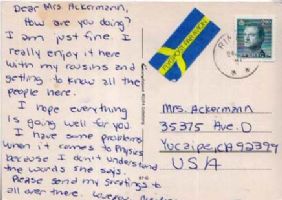 Dear Mrs. Ackermann,
How are you doing?
I am just fine. I
really enjoy it here
with my cousins and
getting to know all the
people here.
I hope everything
is going well for you.
I have some problems
when it comes to Physics
because I don't understand
the words she says.
Please send my greetings to
all over there.
Mrs. Ackermann
35375 Ave. D
Yucaipa, CA 92399
USA